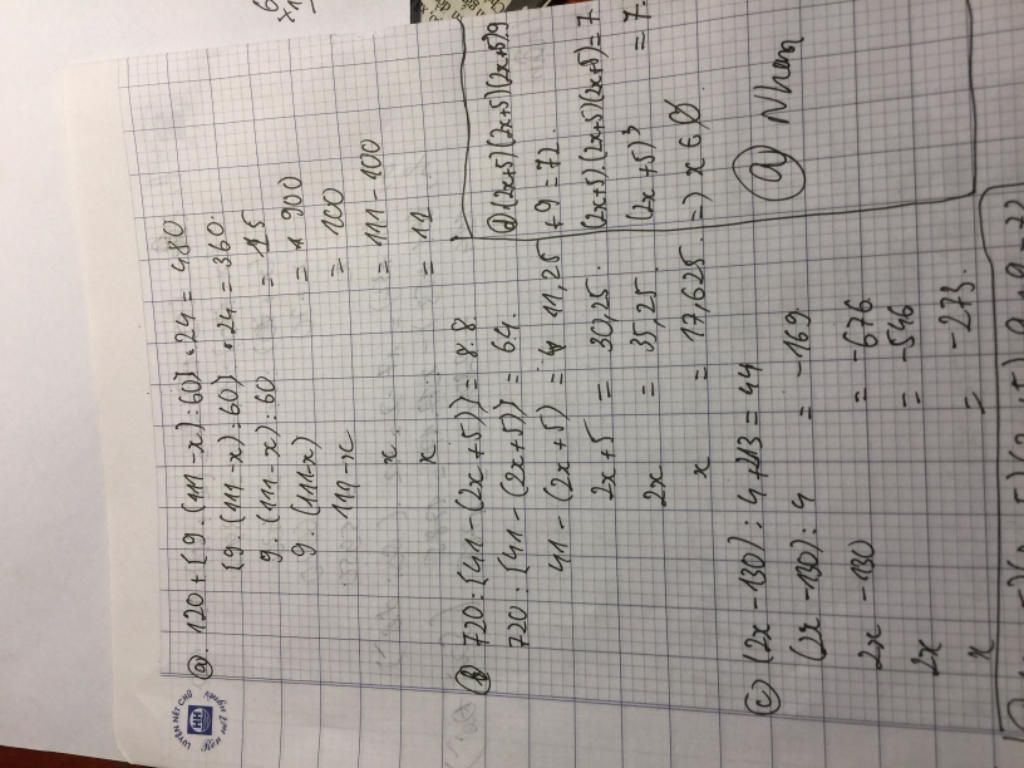 LUYỆN NÉT CHỮ
HH
Rèn nết người
a) 120 + [9 . (111 - x) : 60] . 24 = 480
[9 . (111 - x) : 60] . 24 = 360.
9 . (111 - x) : 60 = 15
9 . (111-x) = 900
111 - x = 100
x = 111 - 100
x = 11
b) 720 : [41 - (2x + 5)] = 8.8
720 : [41 - (2x + 5)] = 64.
41 - (2x + 5) = 11,25
2x + 5 = 30,25.
2x = 35,25.
x = 17,625.
c) (2x - 130) : 4 + 213 = 44
(2x - 130) : 4 = -169.
2x - 130 = -676
2x = -546
x = -273.
d) (2x+5)(2x+5)(2x+5).9
: 9 = 72.
(2x+5).(2x+5)(2x+5) = 7
(2x+5)³ = 7.
=) x ∈ ∅